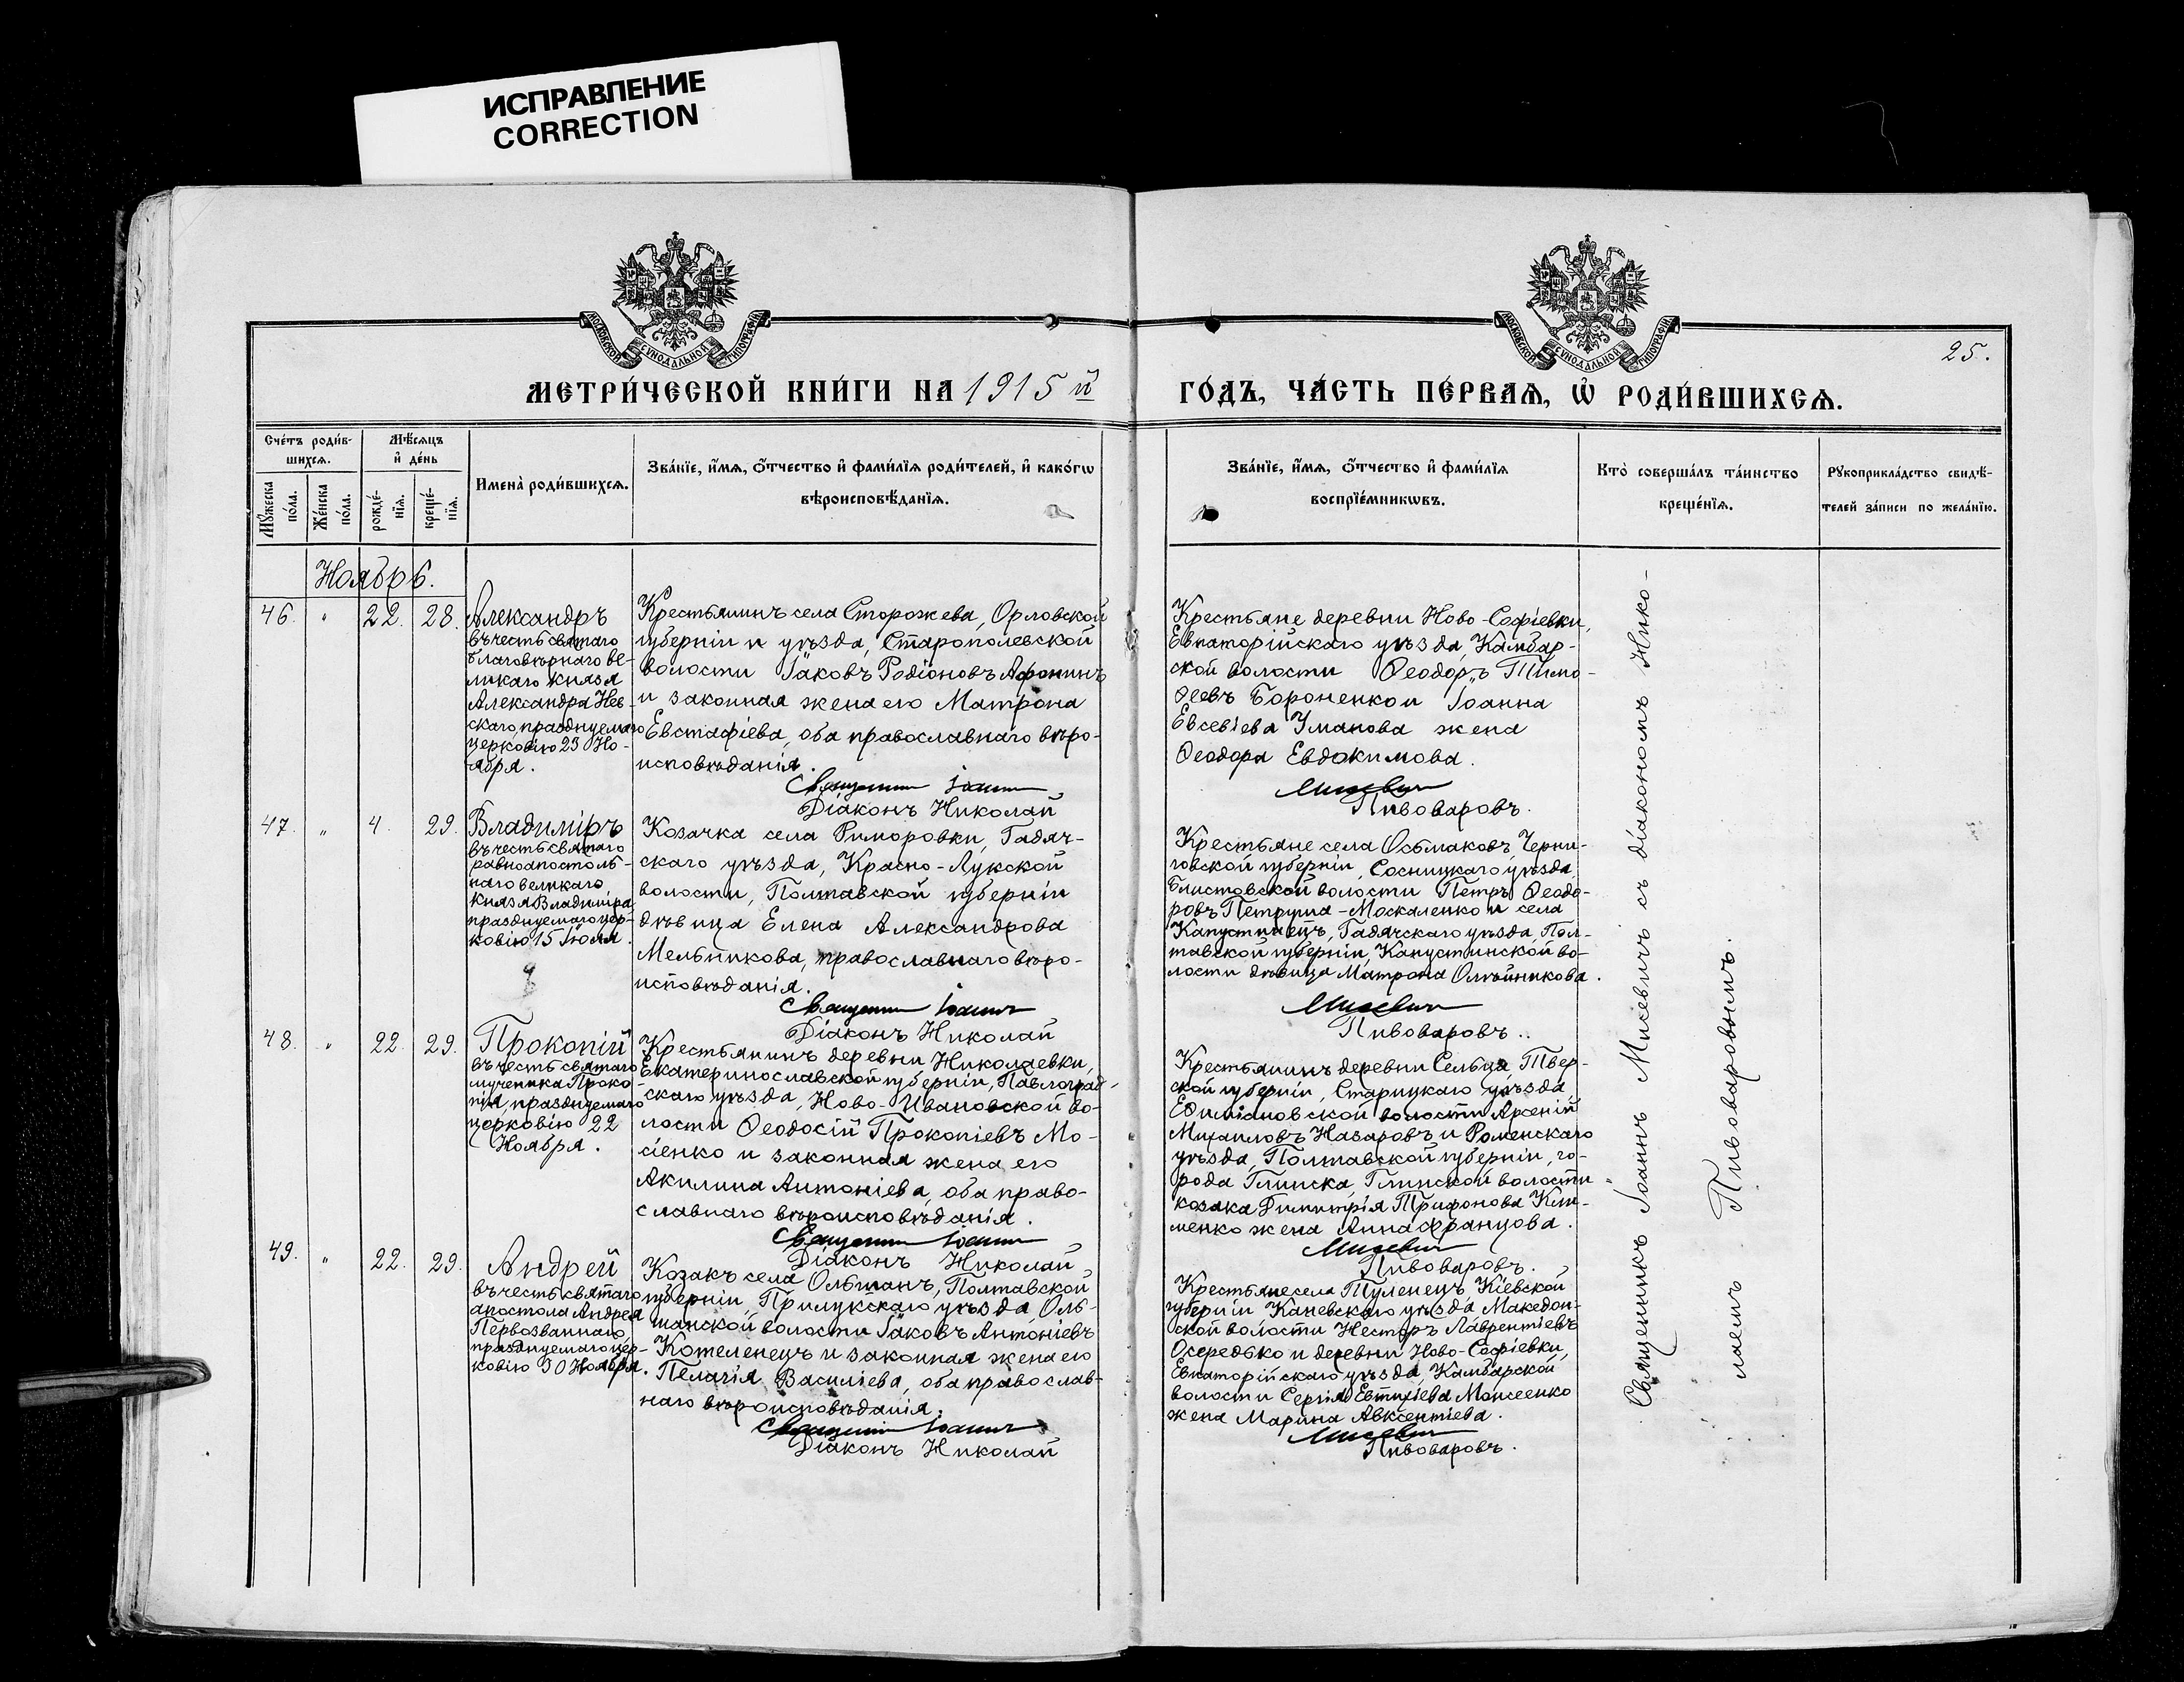 ИСПРАВЛЕНИЕ
CORRECTION
МОСКОВСКОЙ СУНОДАЛЬНОЙ ТИПОГРАФІИ
МОСКОВСКОЙ СУНОДАЛЬНОЙ ТИПОГРАФІИ
25.
МЕТРИ́ЧЕСКОЙ КНИ́ГИ НА 1915 й
ГО́ДЪ, ЧА́СТЬ ПЕ́РВАѦ, Ѡ҆ РОДИ́ВШИХСѦ.
Сче́тъ роди́в-
шихсѧ.
Мѣ́сѧцъ
и҆ де́нь
Мꙋ́жеска
по́ла.
Же́нска
по́ла.
рожде́-
нїѧ.
креще́-
нїѧ.
Имена̀ роди́вшихсѧ.
Зва́нїе, и҆́мѧ, ѻ҆́тчество и҆ фами́лїѧ роди́телей, и҆ како́гѡ
вѣроисповѣ́данїѧ.
Зва́нїе, и҆́мѧ, ѻ҆́тчество и҆ фами́лїѧ
воспрїе́мникѡвъ.
Кто̀ соверша́лъ та́инство
креще́нїѧ.
Рꙋкоприкла́дство свидѣ́-
телей за́писи по жела́нїю.
Ноябрь.
46. " 22. 28.
Александръ
въ честь святаго
благовѣрнаго ве-
ликаго князя
Александра Нев-
скаго, празднуемаго
церковію 23 Но-
ября.
Крестьянинъ села Сторожева, Орловской
губерніи и уѣзда, Старополевской
волости Іаковъ Родіоновъ Афонинъ
и законная жена его Матрона
Евстафіева, оба православнаго вѣро-
исповѣданія.
Священникъ Іоаннъ
Діаконъ Николай
Крестьяне деревни Ново-Софіевки,
Евпаторійскаго уѣзда, Камбар-
ской волости Ѳеодоръ Тимо-
ѳеевъ Бороненко и Іоанна
Евсевіева Уманова жена
Ѳеодора Евдокимова.
Мисевичъ
Пивоваровъ.
47. " 4. 29.
Владиміръ
въ честь святаго
равноапостоль-
наго великаго
князя Владиміра
празднуемаго цер-
ковію 15 Іюля.
Козачка села Римаровки, Гадяч-
скаго уѣзда, Красно-Лукской
волости, Полтавской губерніи
дѣвица Елена Александрова
Мельникова, православнаго вѣро-
исповѣданія.
Священникъ Іоаннъ
Діаконъ Николай
Крестьяне села Осьмаковъ, Черни-
говской губерніи, Сосницкаго уѣзда,
Блистовской волости Петръ Ѳеодо-
ровъ Петруша-Москаленко и села
Капустинецъ, Гадячскаго уѣзда, Пол-
тавской губерніи, Капустинской во-
лости дѣвица Матрона Олѣйникова.
Мисевичъ
Пивоваровъ..
48. " 22. 29.
Прокопій
въ честь святаго
мученика Проко-
пія, празднуемаго
церковію 22
Ноября.
Крестьянинъ деревни Николаевки,
Екатеринославской губерніи, Павлоград-
скаго уѣзда, Ново-Ивановской во-
лости Ѳеодосій Прокопіевъ Мо-
сіенко и законная жена его
Акилина Антоніева, оба право-
славнаго вѣроисповѣданія.
Священникъ Іоаннъ
Діаконъ Николай
Крестьянинъ деревни Сельца, Твер-
ской губерніи, Старицкаго уѣзда
волости Арсеній
Михаиловъ Назаровъ и Роменскаго
уѣзда, Полтавской губерніи, го-
рода Глинска, Глинской волости
козака Димитрія Трифонова Кли-
менко жена Анна Францова.
Мисевичъ
Пивоваровъ.
49. " 22. 29.
Андрей
въ честь святаго
апостола Андрея
Первозваннаго,
празднуемаго цер-
ковію 30 Ноября.
Козакъ села Ольшанъ, Полтавской
губерніи, Прилукскаго уѣзда, Оль-
шанской волости Іаковъ Антоніевъ
Котеленецъ и законная жена его
Пелагія Василіева, оба православ-
наго вѣроисповѣданія.
Священникъ Іоаннъ
Діаконъ Николай
Крестьяне села Туленецъ, Кіевской
губерніи Каневскаго уѣзда Македон-
ской волости Несторъ Лаврентіевъ
Осередько и деревни Ново-Софіевки,
Евпаторійскаго уѣзда, Камбарской
волости Сергія Евтихіева Моисеенко
жена Марина Авксентіева.
Мисевичъ
Пивоваровъ.
Священникъ Іоаннъ Мисевичъ съ діакономъ Нико-
лаемъ Пивоваровымъ.